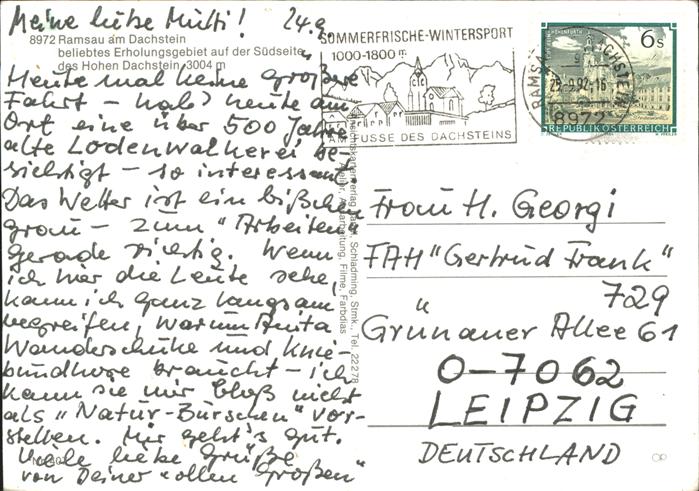 Meine liebe Mutti! 24.9.
8972 Ramsau am Dachstein
beliebtes Erholungsgebiet auf der Südseite
des Hohen Dachstein, 3004 m
Heute mal keine größere
Fahrt – hab' heute am
Ort eine über 500 Jahre
alte Lodenwalkerei be-
sichtigt – so interessant.
Das Wetter ist ein bißchen
grau – zum "Arbeiten"
gerade richtig. Wenn
ich hier die Leute sehe,
kann ich ganz langsam
begreifen, warum Anita
Wanderschuhe und Knie-
bundhose braucht – ich
kann sie mir bloß nicht
als "Natur-Burschen" vor-
stellen. Mir geht's gut.
Viele liebe Grüße
von Deiner "ollen Großen"
SOMMERFRISCHE-WINTERSPORT
1000-1800 m
AM FUSSE DES DACHSTEINS
RAMSAU DACHSTEIN
-9.92-16
8972
6 s
REPUBLIK ÖSTERREICH
Schladming, Stmk., Tel. 22278
Filme, Farbdias
Frau H. Georgi
FAH "Gertrud Frank"
729
Grünauer Allee 61
O-7062
LEIPZIG
DEUTSCHLAND